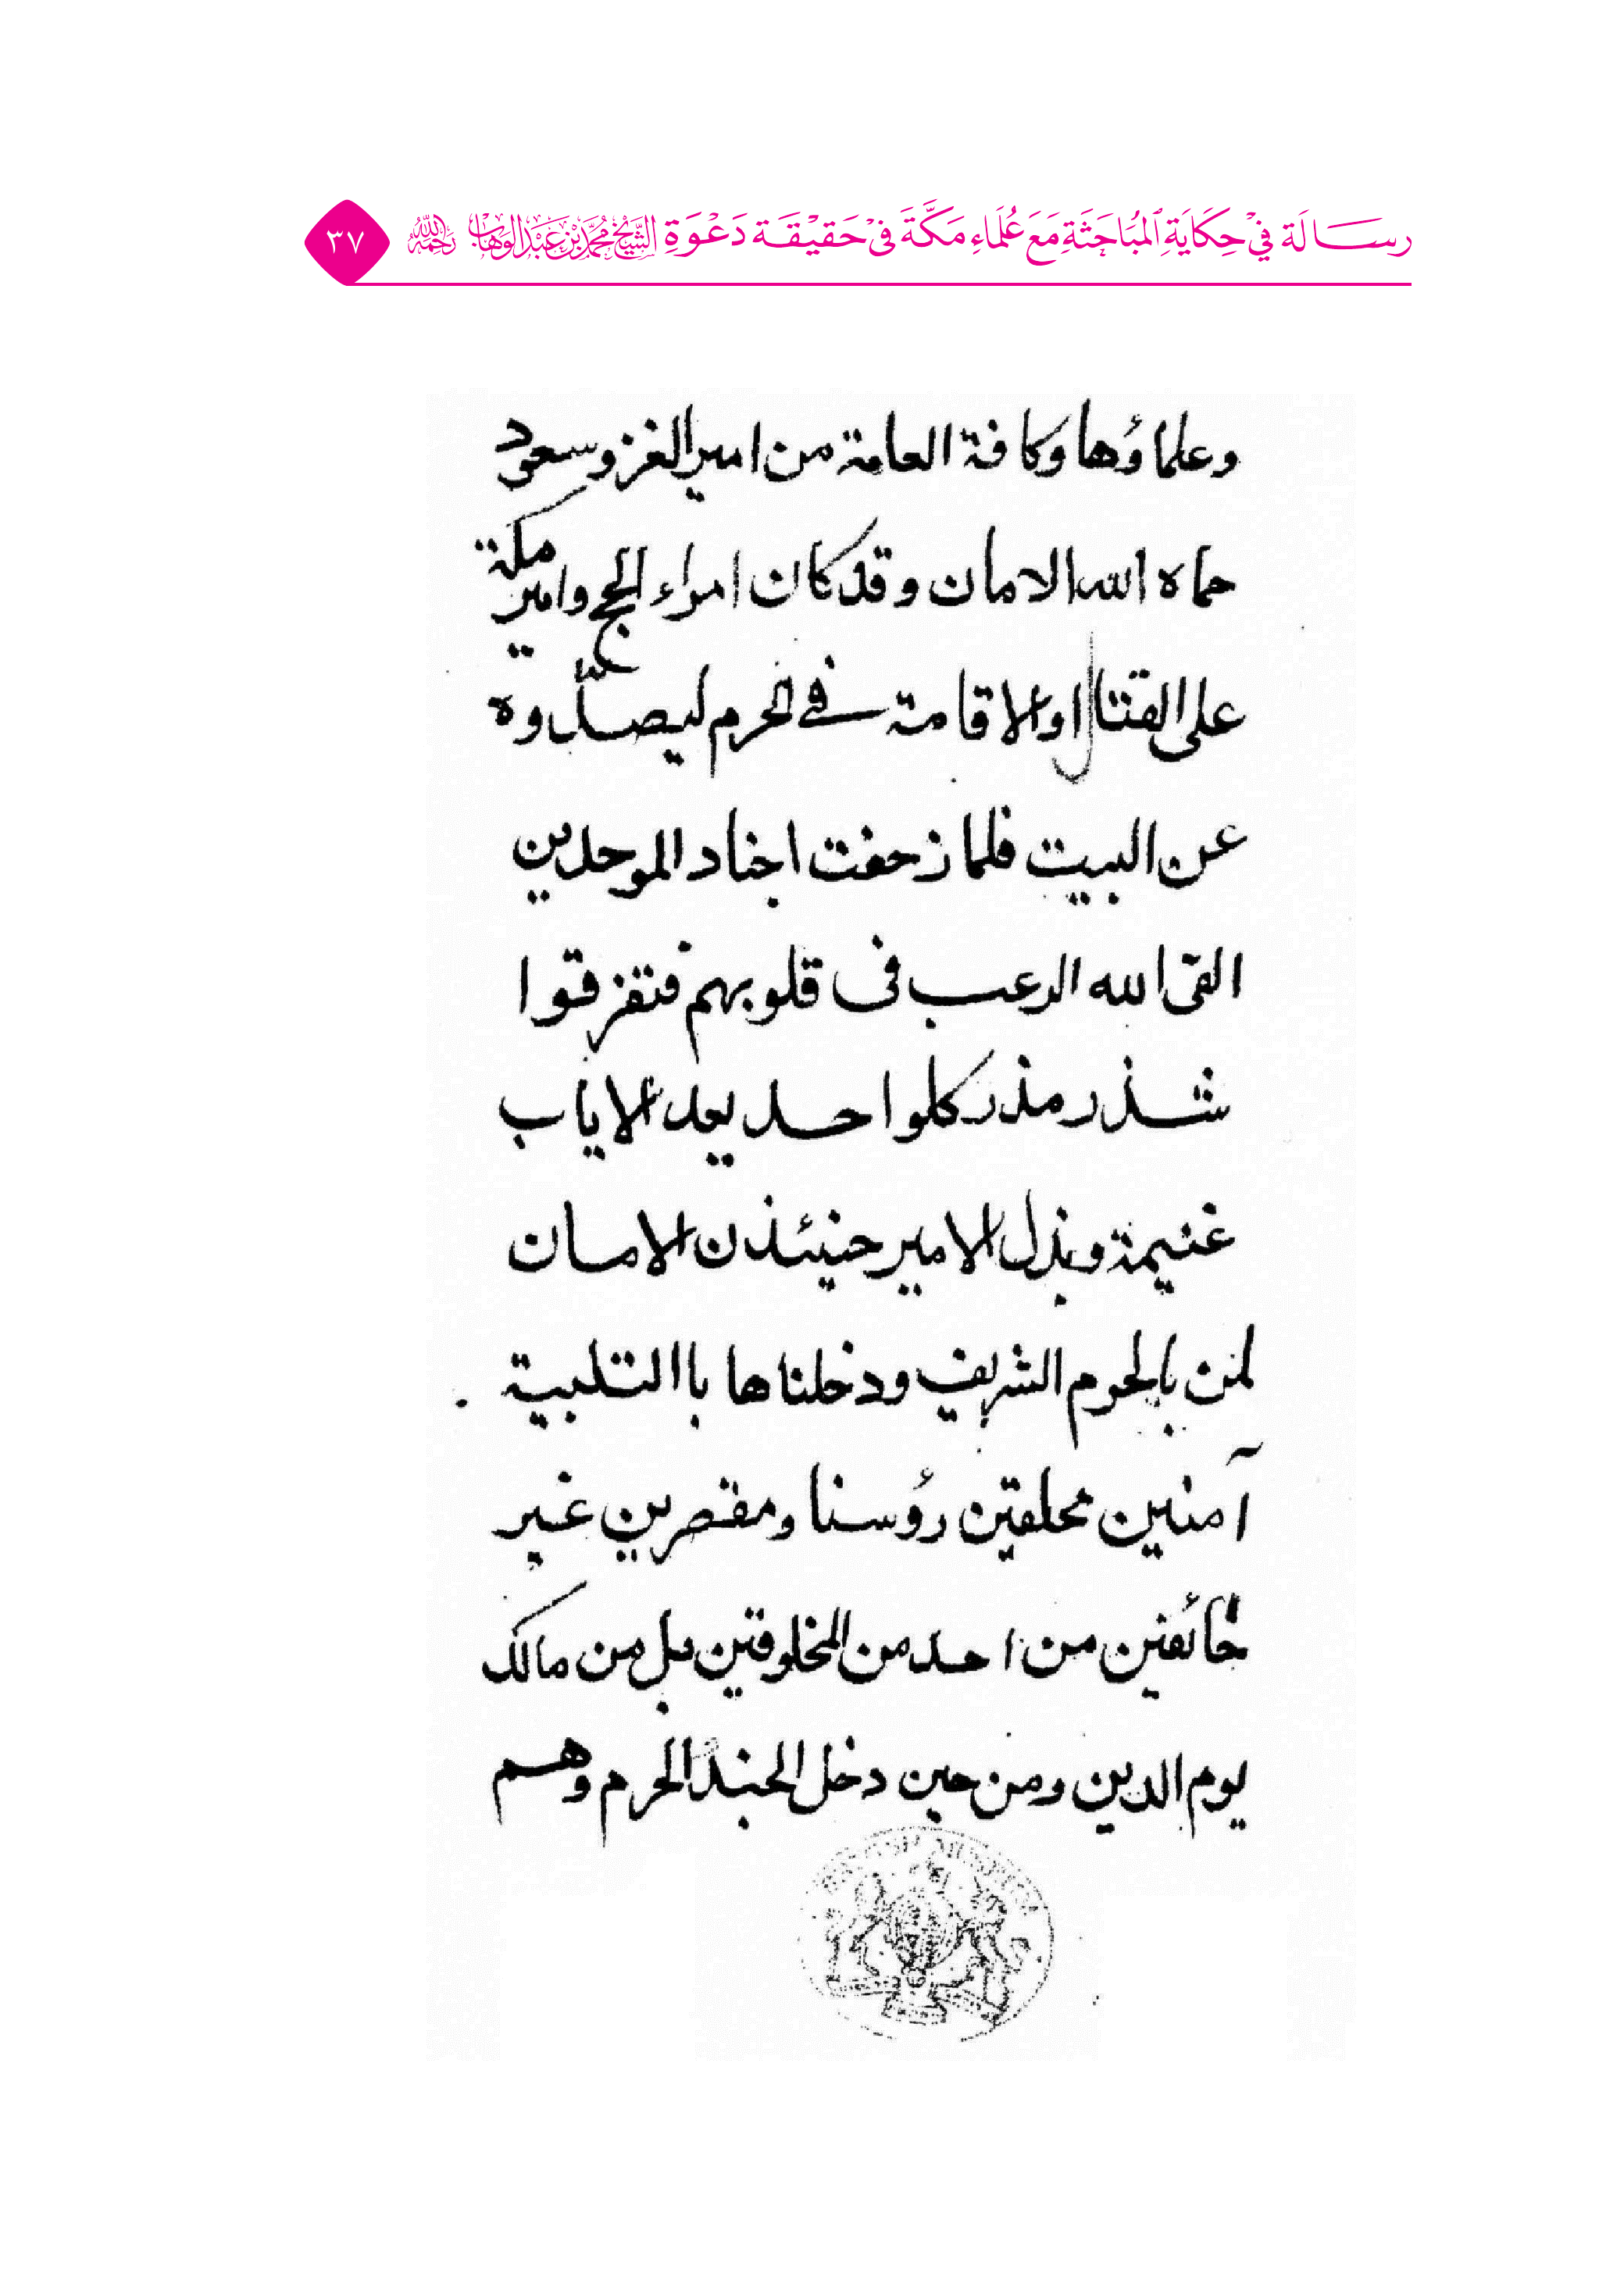 رسالة في حكاية المباحثة مع علماء مكة في حقيقة دعوة الشيخ محمد بن عبد الوهاب رحمه الله ٣٧
وعلماؤها وكافة العامة من امير الغزو سعود
حماه الله الامان وقد كان امراء الحج وامير مكة
على القتال او الاقامة في الحرم ليصدّوه
عن البيت فلما زحفت اجناد الموحدين
القى الله الرعب في قلوبهم فتفزقوا
شذر مذر كلواحد يعد الاياب
غنيمة وبذل الامير حنيئذن الامان
لمن بالحرم الشريف ودخلناها باالتلبية
آمنين محلقين رؤسنا ومقصرين غير
خائفين من احد من المخلوقين بل من مالك
يوم الدين ومن حين دخل الجند الحرم وهم